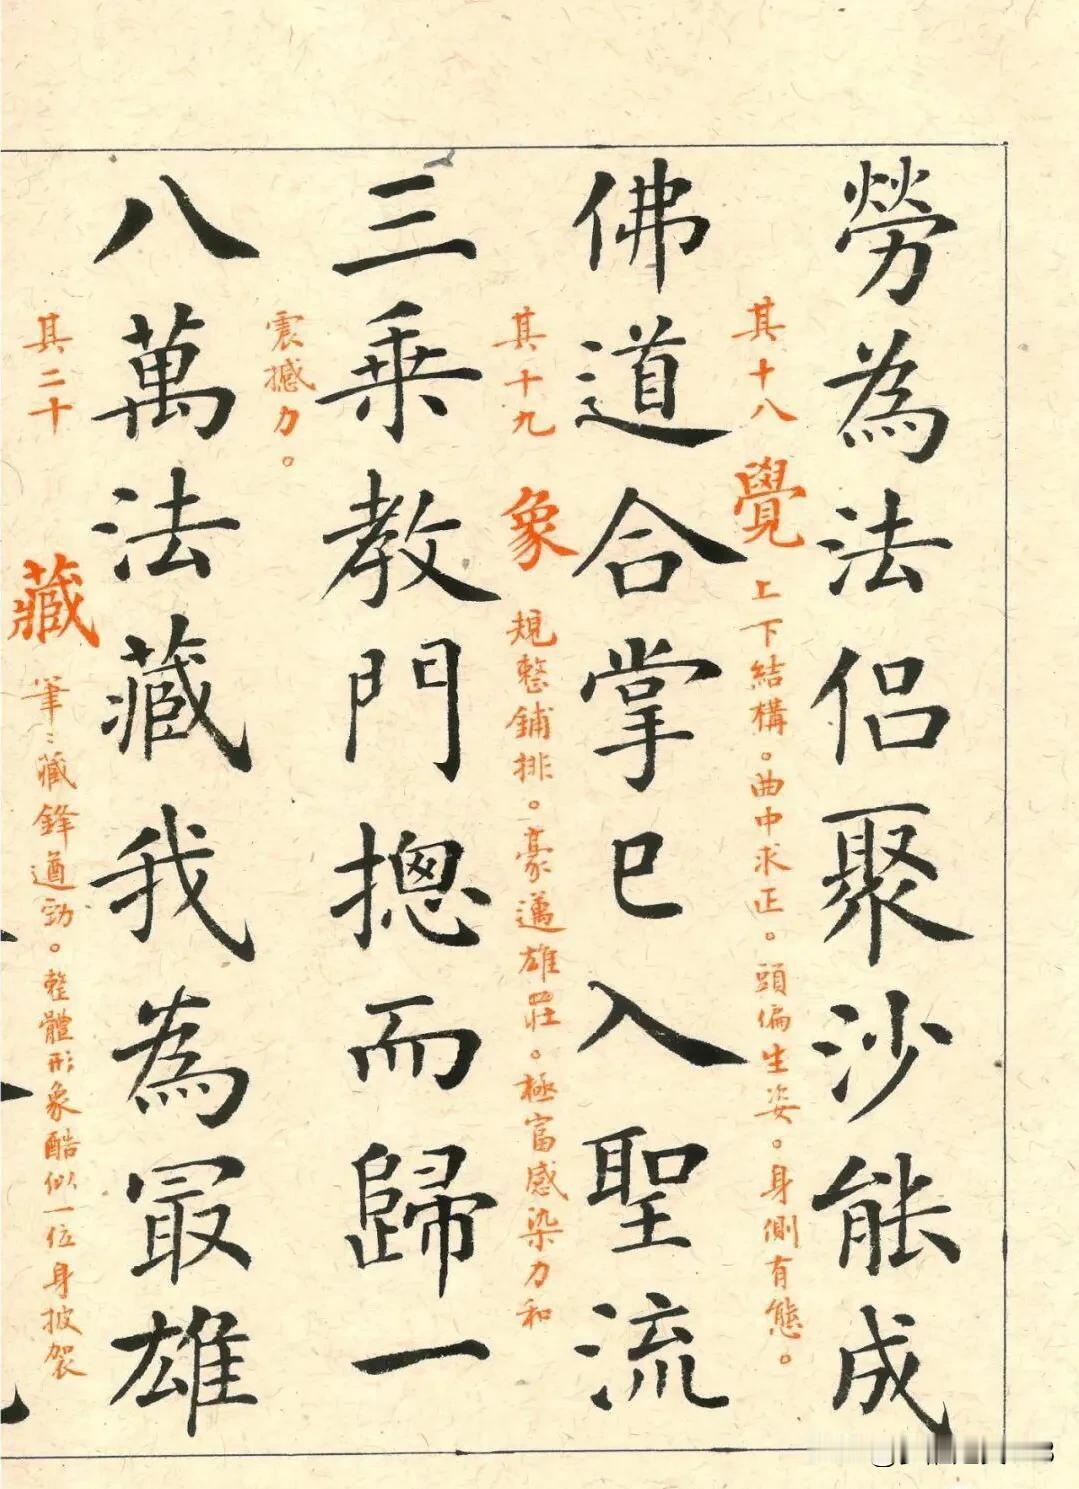 勞為法侶聚沙能成
其十八 覺 上下結構。曲中求正。頭偏生姿。身側有態。
佛道合掌已入聖流
其十九 象 規整鋪排。豪邁雄莊。極富感染力和
三乗教門摠而歸一
震撼力。
八萬法藏我為冣雄
其二十 藏 筆〻藏鋒遒勁。整體形象酷似一位身披袈